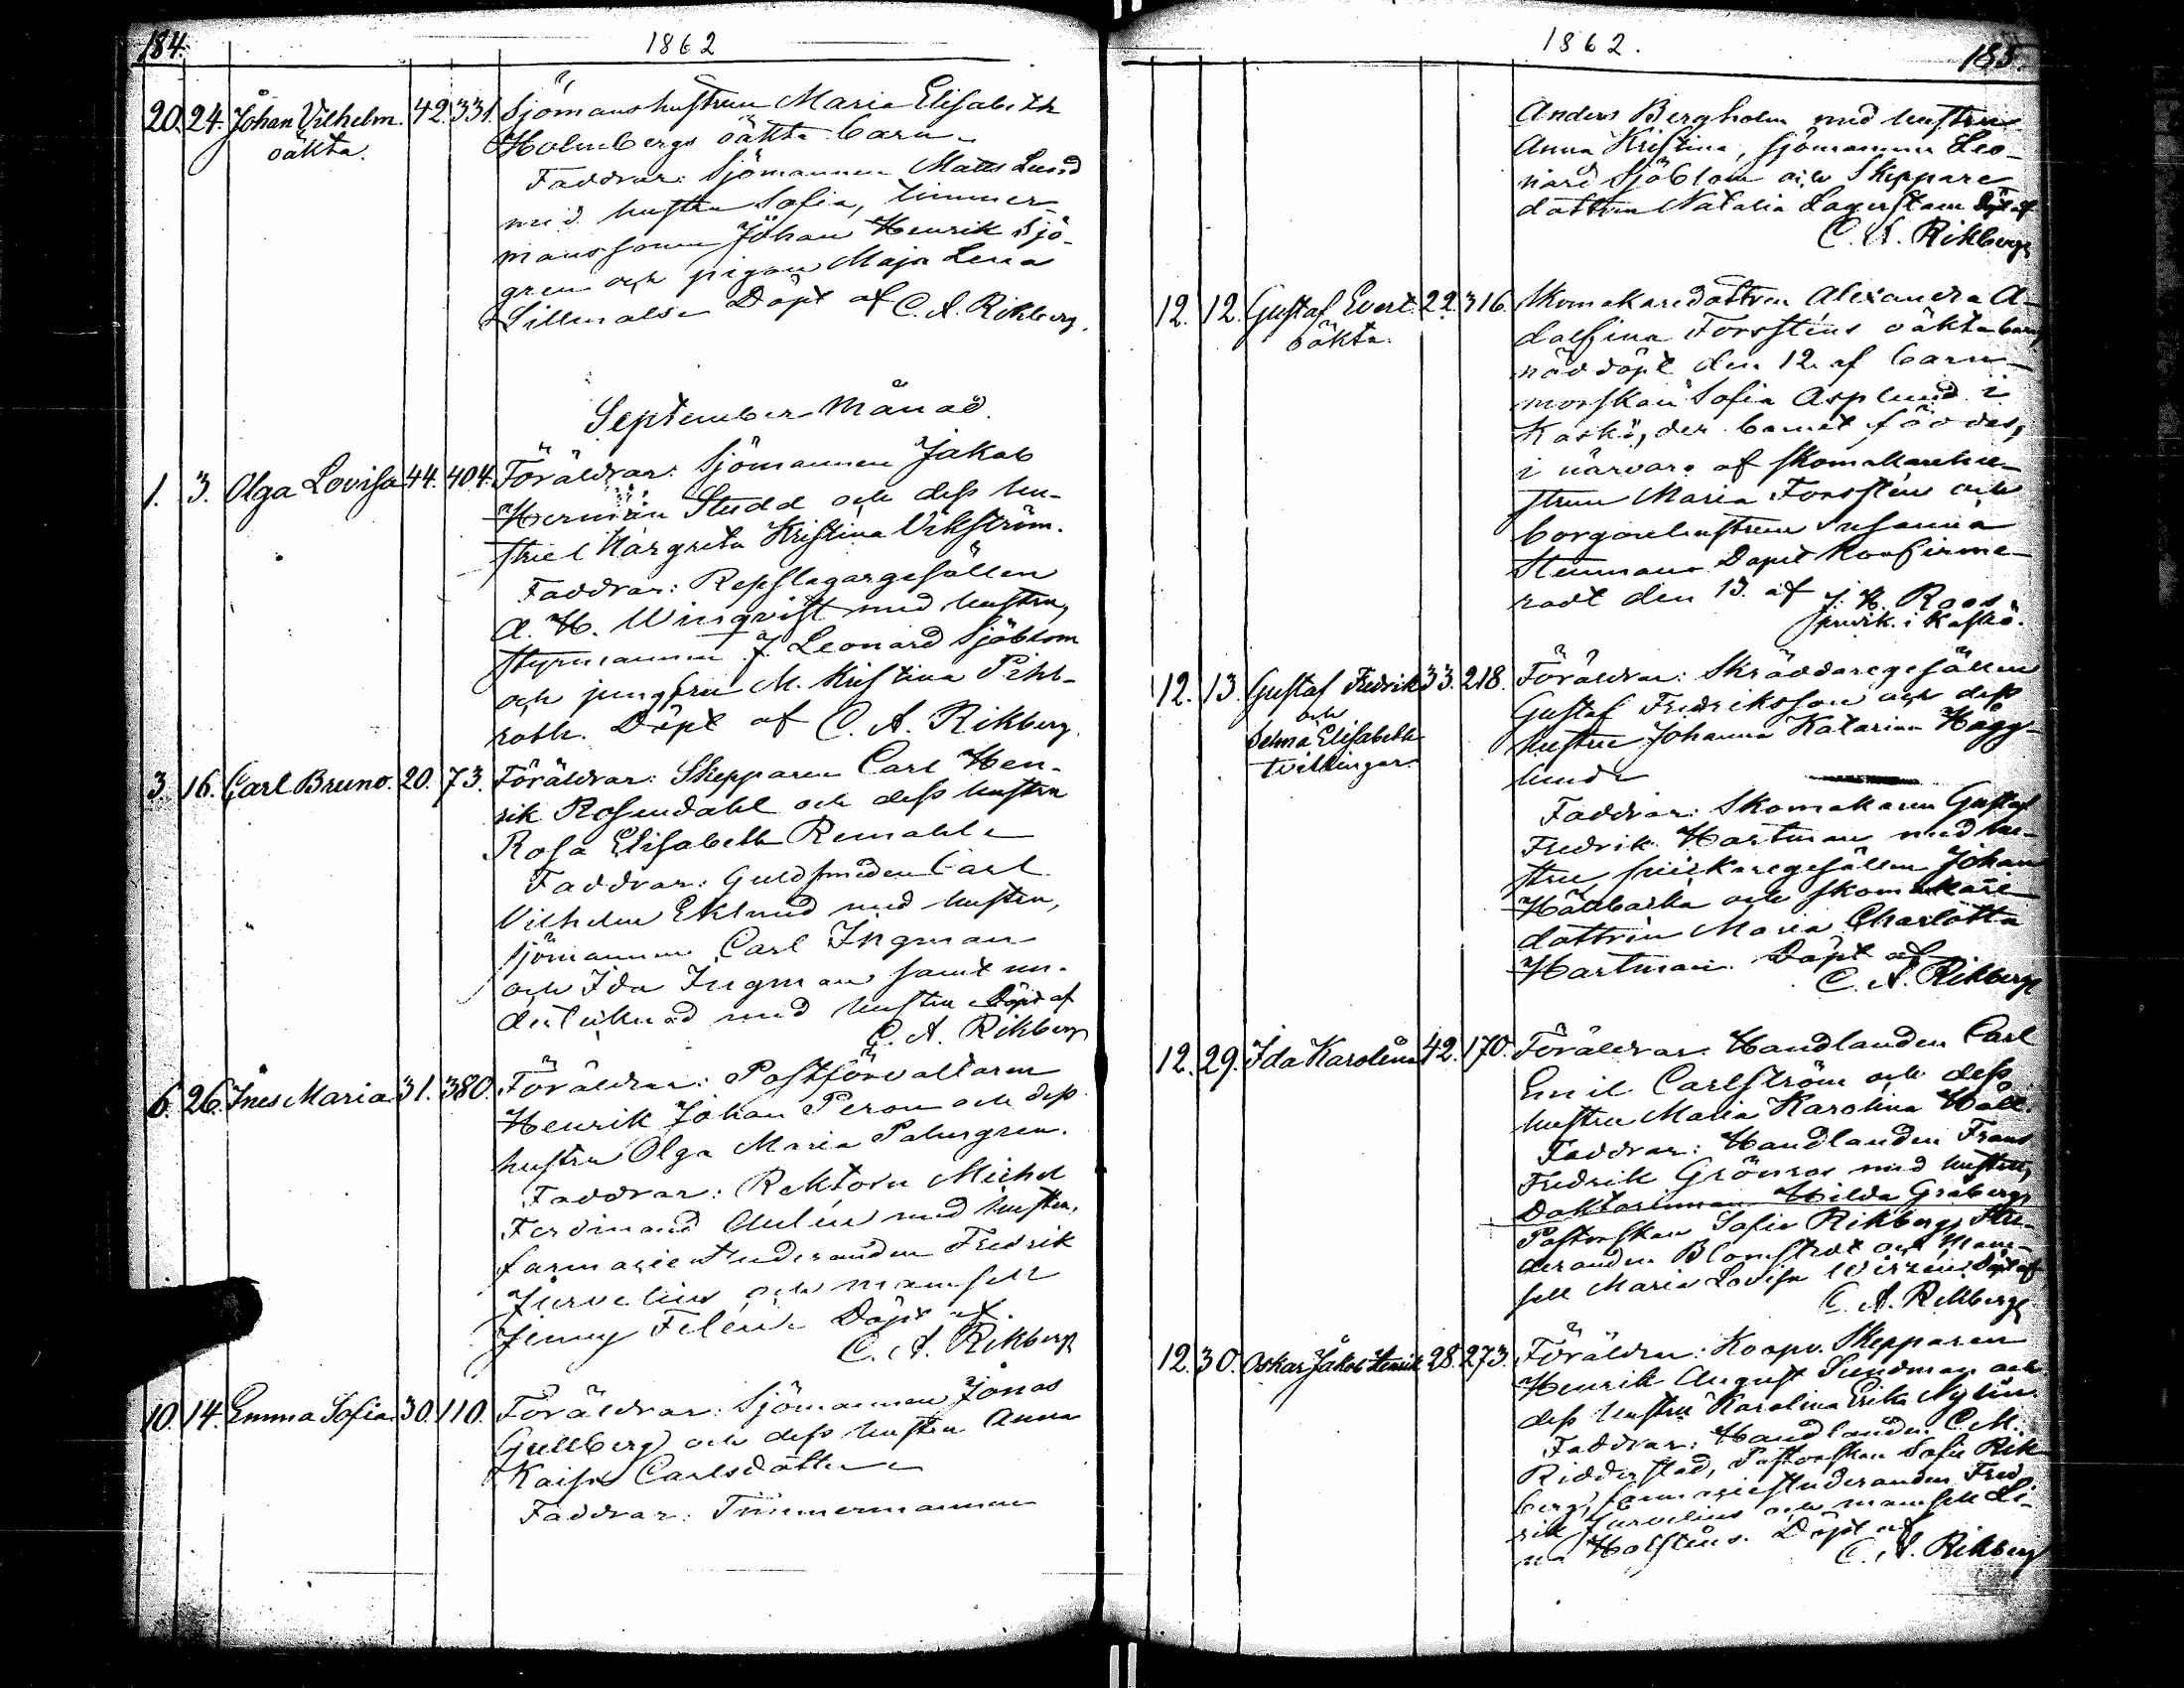 184.
1862
20. 24. Johan Vilhelm. 42. 331. Sjömanshustrun Maria Elisabeth
oäkta. Holmbergs oäkta barn
Faddrar: Sjömannen Matts Lund
med hustru Sofia, timmer-
manssonen Johan Henrik Sjö-
gren och pigan Maja Lena
Lillmalss Döpt af C. A. Rikberg.
September Månad.
1. 3. Olga Lovisa 44. 404. Föräldrar: Sjömannen Jakob
Herman Studd och dess hu-
stru Margreta Kristina Vikström.
Faddrar: Repslagargesällen
A. H. Winqvist med hustru,
styrmannen J. Leonard Sjöblom
och jungfru M. Kristina Pihl-
roth. Döpt af C. A. Rikberg.
3. 16. Carl Bruno. 20. 73. Föräldrar: Skepparen Carl Hen-
rik Rosendahl och dess hustru
Rosa Elisabeth Remahl
Faddrar: Guldsmeden Carl
Vilhelm Eklund med hustru,
sjömannen Carl Ingman
och Ida Ingman samt
med hustru Döpt af
C. A. Rikberg
6. 26. Ines Maria 31. 380. Föräldrar: Postförvaltaren
Henrik Johan Peron och dess
hustru Olga Maria Palmgren.
Faddrar: Rektorn Michel
Ferdinand Aulén med hustru,
farmaciestuderanden Fredrik
Jurvelius och mamsell
Jenny Felén. Döpt af
C. A. Rikberg
10. 14. Emma Sofia 30. 110. Föräldrar: Sjömannen Jonas
Gullberg och dess hustru Anna
Kaisa Carlsdotter
Faddrar: Timmermannen
1862.
185.
Anders Bergholm med hustru
Anna Kristina, sjömannen Leo-
nard Sjöblom och Skeppare
dottren Natalia Lagerstam Döpt af
C. A. Rikberg
12. 12. Gustaf Evert. 22. 316. Skomakaredottren Alexandra A-
oäkta. dolfina Forsténs oäkta barn,
nöddöpt den 12 af barn-
morskan Sofia Asplund i
Kaskö, der barnet föddes,
i närvaro af skomakarehu-
strun Maria Forstén och
borgarehustrun Susanna
Stenman. Dopet konfirme-
radt den 13. af J. H. Roos
predik. i Kaskö.
12. 13. Gustaf Fredrik 33. 218. Föräldrar: Skräddaregesällen
och Gustaf Fredriksson och dess
Selma Elisabeth hustru Johanna Katarina Hägg-
tvillingar. lund
Faddrar: Skomakaren Gustaf
Fredrik Hartman med hu-
stru snickaregesällen Johan
och skomakare
dottren Maria Charlotta
Hartman. Döpt af
C. A. Rikberg
12. 29. Ida Karolina 42. 170. Föräldrar: Handlanden Carl
Emil Carlström och dess
hustru Maria Karolina Häll.
Faddrar: Handlanden Frans
Fredrik Grönroos med hustru,
Doktorinnan Hilda Gråberg,
Pastorskan Sofie Rikberg, Stu-
deranden Blomstedt och Mam-
sell Maria Lovisa Wirzén Döpt af
C. A. Rikberg
12. 30. Oskar Jakob Henrik 28. 273. Föräldrar: Koopv. Skepparen
Henrik August Sundman och
dess hustru Karolina Erika Nylund.
Faddrar: Handlanden C. M.
Ridderstad, Pastorskan Sofie Rik-
berg, farmaciestuderanden Fred-
rik Jurvelius och mamsell Li-
na Holsténs. Döpt af
C. A. Rikberg